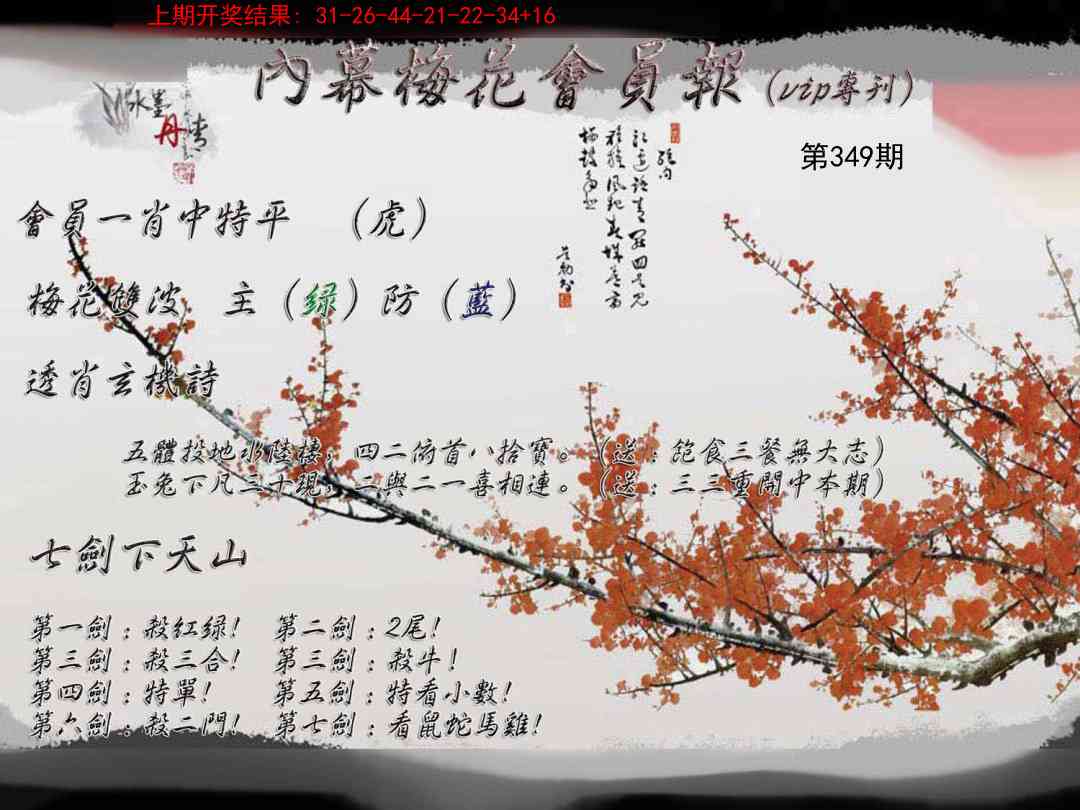 上期开奖结果: 31-26-44-21-22-34+16
內幕梅花會員報（vip專刊）
水墨
丹青
第349期
會員一肖中特平 （虎）
梅花雙波 主（绿）防（藍）
透肖玄機詩
五體投地水陸棲，四二俯首八拾寶。（送：飽食三餐無大志）
玉兔下凡三十現，二與二一喜相連。（送：三三重開中本期）
七劍下天山
第一劍：殺紅绿！ 第二劍：2尾！
第三劍：殺三合！ 第三劍：殺牛！
第四劍：特單！ 第五劍：特看小數！
第六劍：殺二門！ 第七劍：看鼠蛇馬雞！